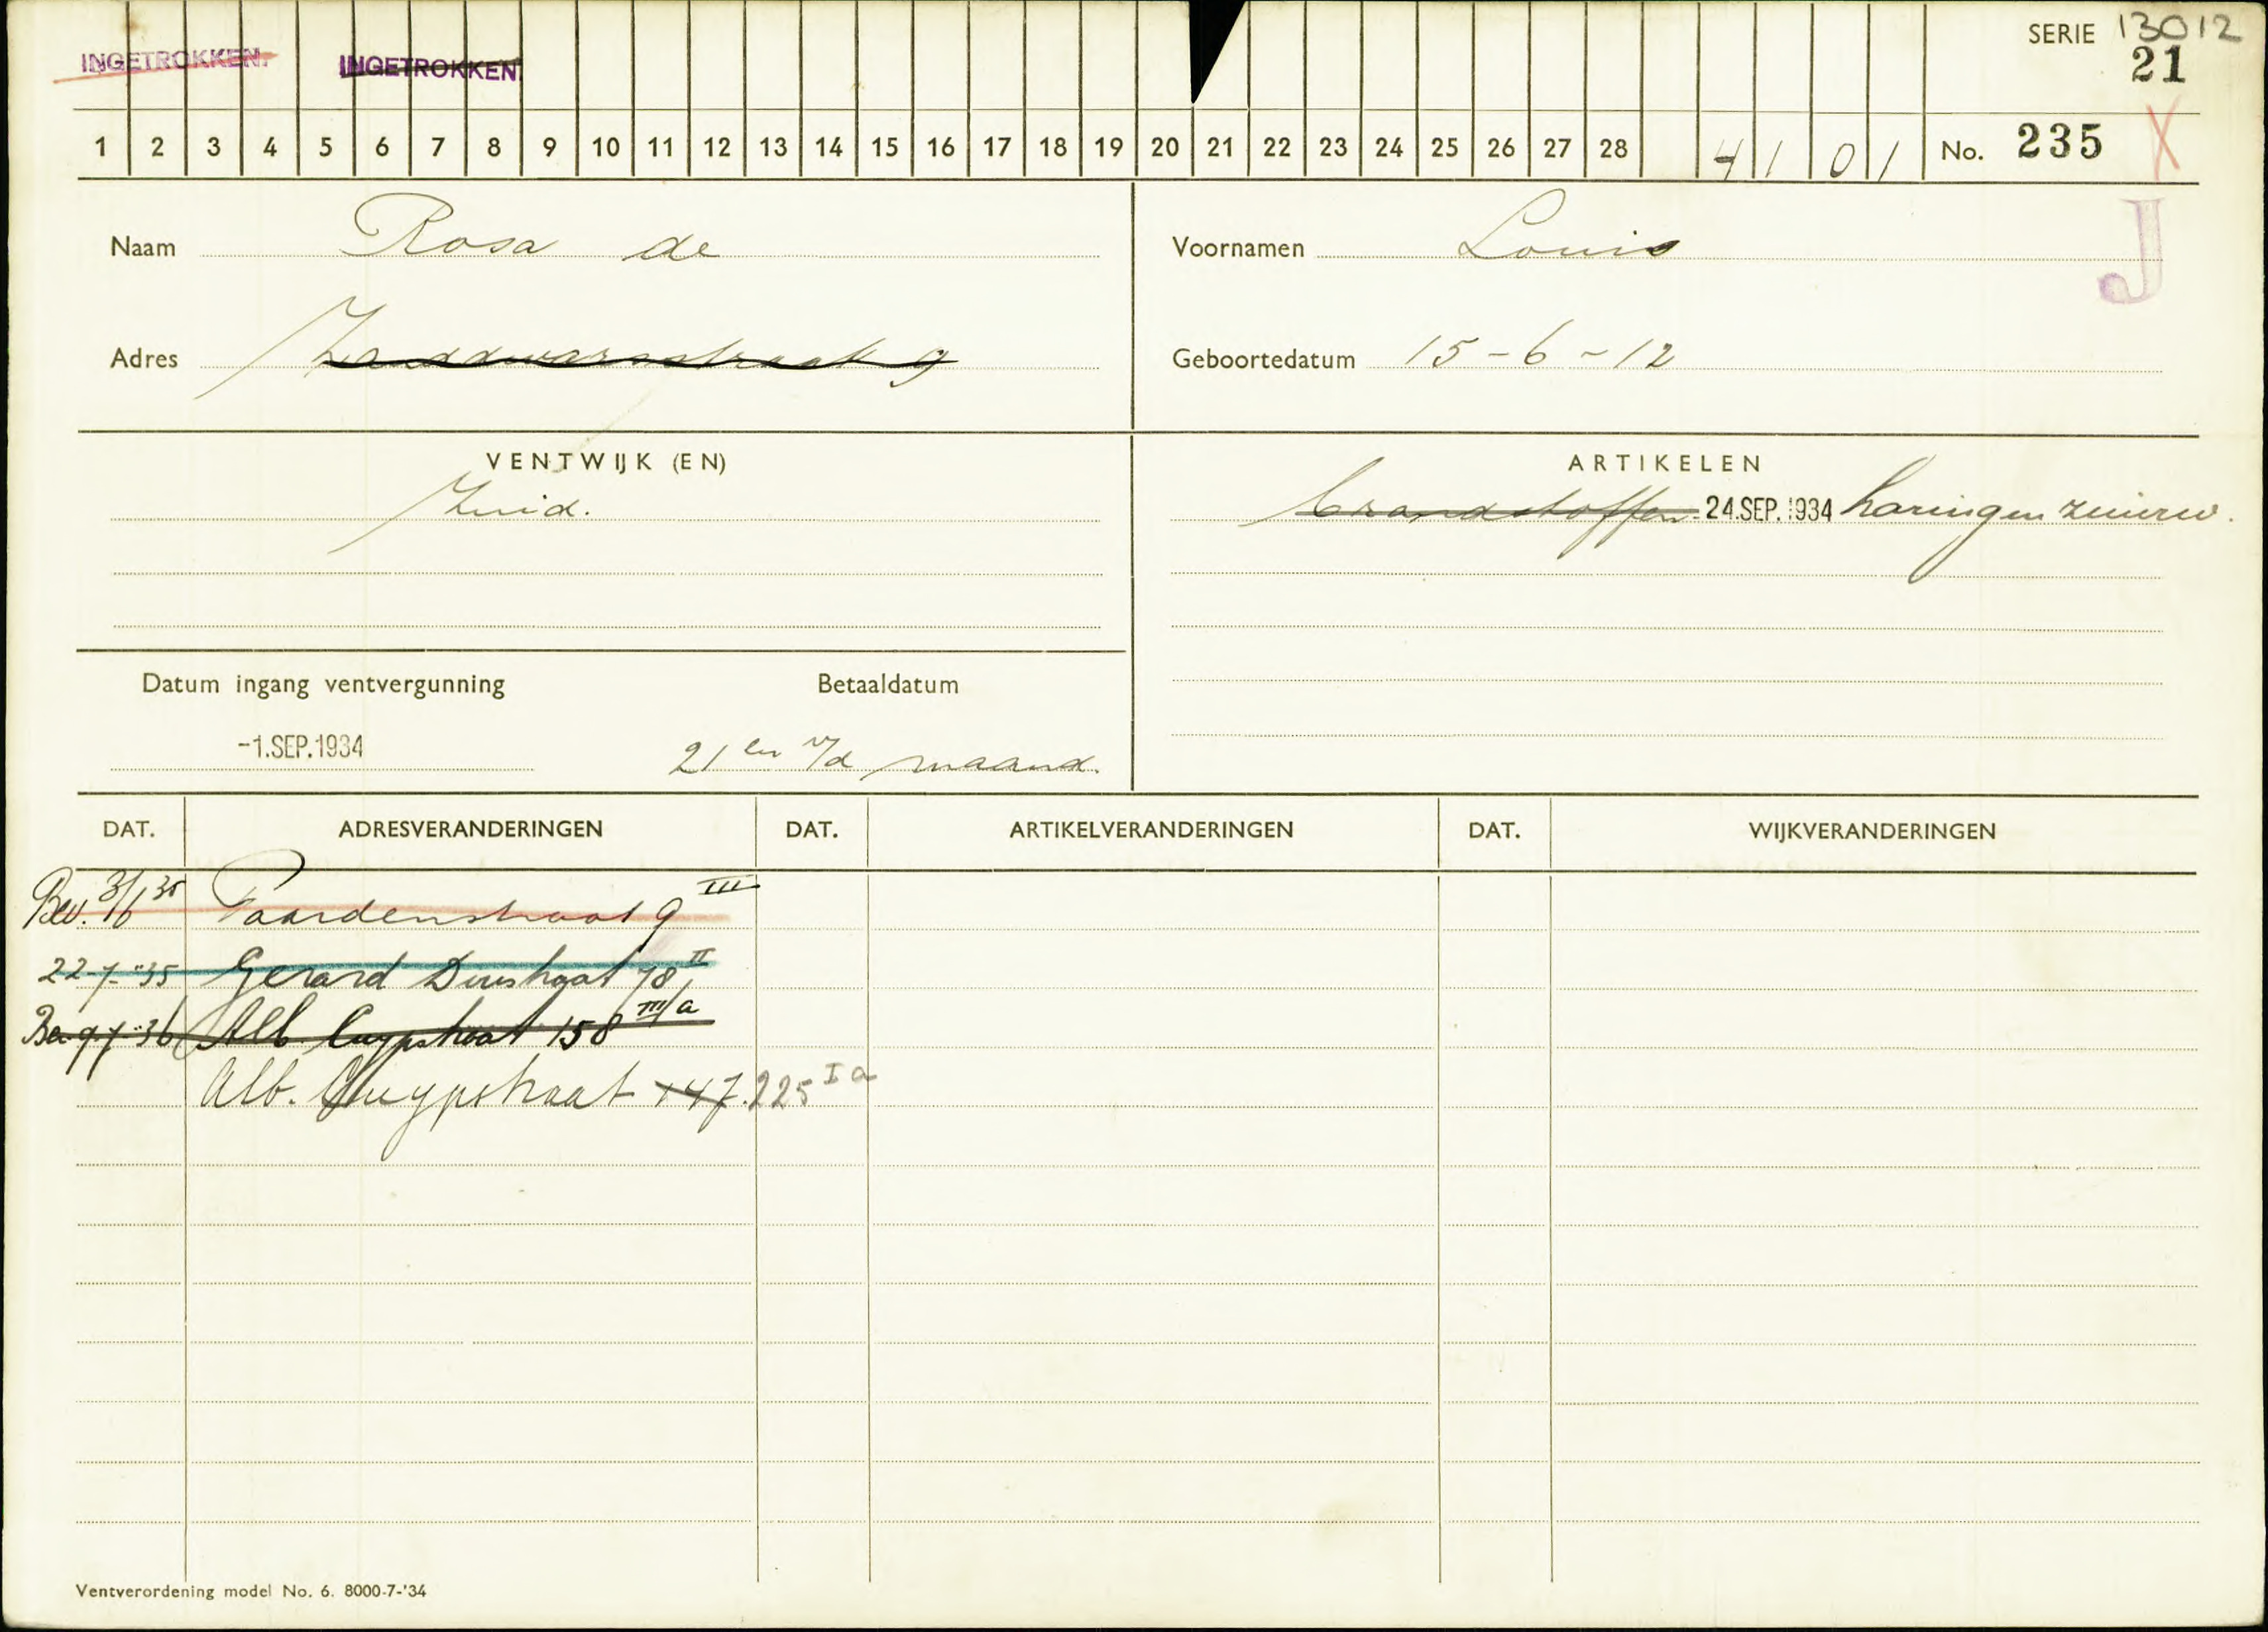 SERIE 13012
INGETROKKEN. INGETROKKEN. 21
1 2 3 4 5 6 7 8 9 10 11 12 13 14 15 16 17 18 19 20 21 22 23 24 25 26 27 28 4 1 0 1 No. 235 X
J
Naam Rosa de Voornamen Louis
Adres Zanddwarsstraat 9 Geboortedatum 15-6-12
VENTWIJK (EN) ARTIKELEN
Zuid. brandstoffen 24.SEP.1934 haring en zuurw.
Datum ingang ventvergunning Betaaldatum
-1.SEP.1934 21en v/d maand.
DAT. ADRESVERANDERINGEN DAT. ARTIKELVERANDERINGEN DAT. WIJKVERANDERINGEN
Bev. 3/6 35 Paardenstraat 9 III
22-7-35 Gerard Doustraat 78 II
Be 9-7-36 Alb. Cuypstraat 158 III/a
Alb. Cuypstraat 147. 225 I a
Ventverordening model No. 6. 8000-7-'34